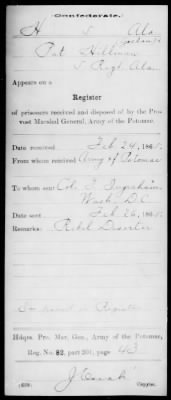 Confederate.
H 5 Ala
Pat Hillman
5 Regt. Ala
Appears on a
Register
of prisoners received and disposed of by the Provost Marshal General, Army of the Potomac.
Date received Feb 24, 1865.
From whom received Army of Potomac
To whom sent Col. T. Ingraham,
Wash. D.C.
Date sent Feb 26, 1865.
Remarks: Rebel Deserter
Register
Hdqrs. Pro. Mar. Gen., Army of the Potomac,
Reg. No. 82, part 201, page 43
(639)
Copyist.